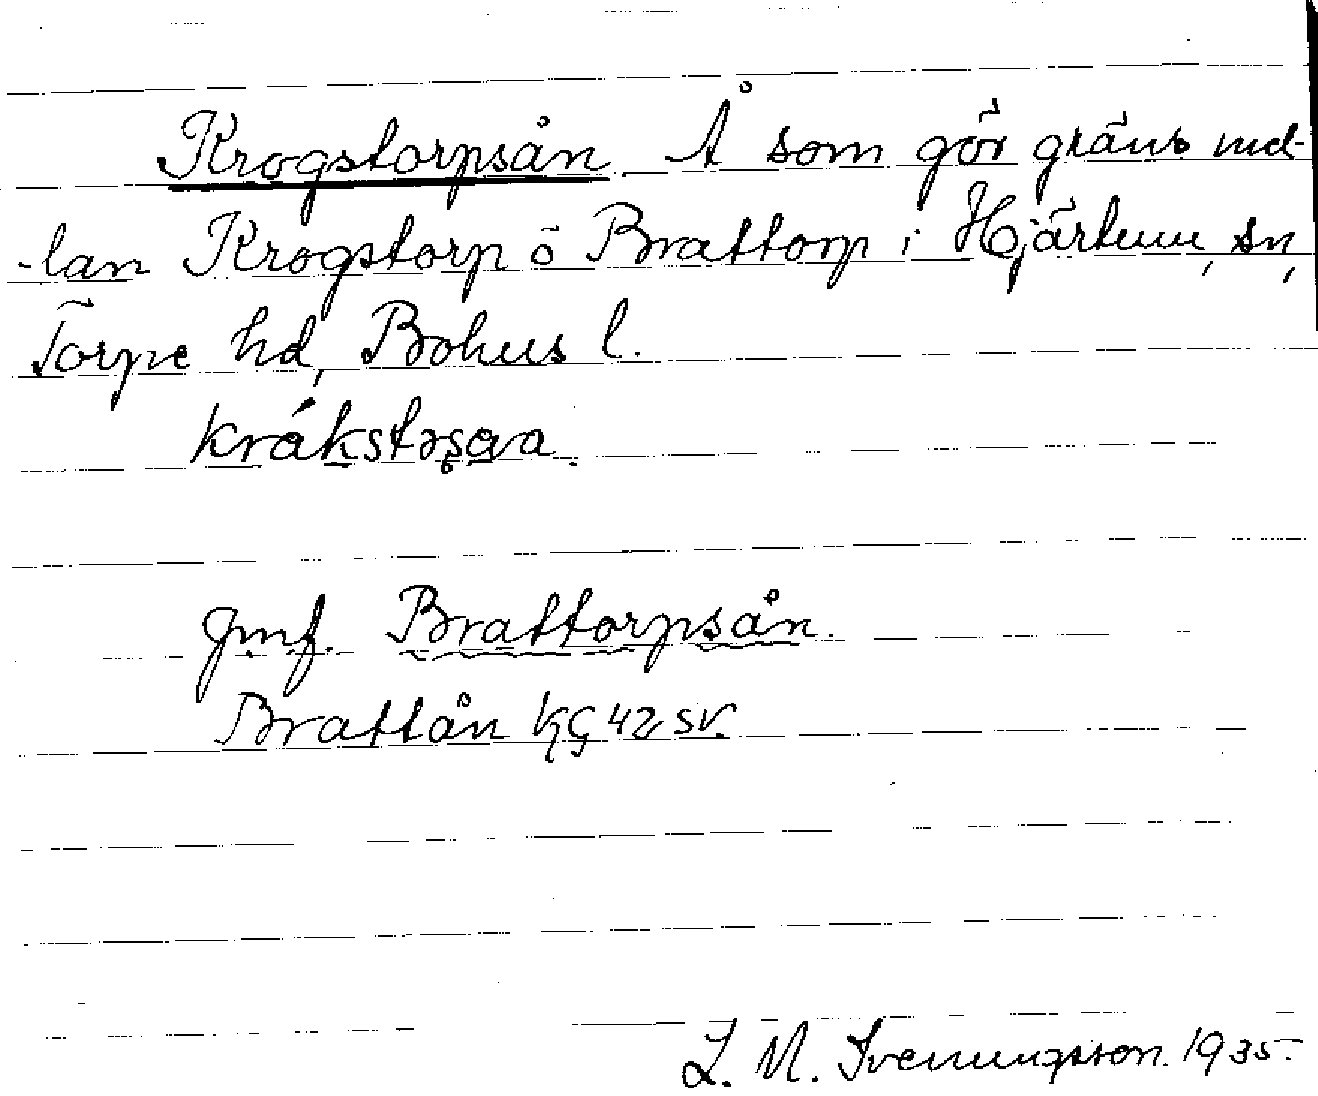 Krogstorpsån. Å som gör gräns mel-
-lan Krogstorp ö Brattorp i Hjärtum, sn,
Torpe hd, Bohus l.
Jmf. Brattorpsån.
Brattån KG 42 SV.
L. M. Svenungsson. 1935.